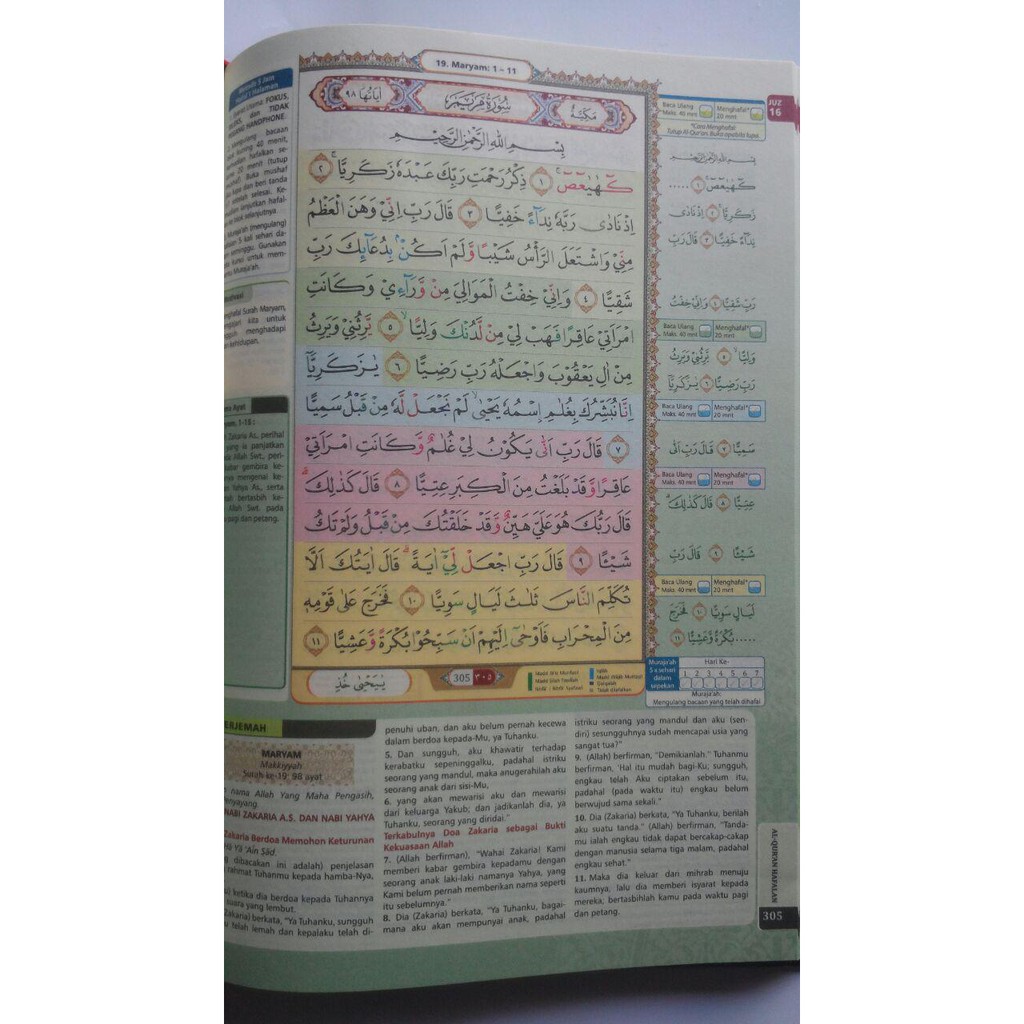 19. Maryam: 1 – 11
JUZ
16
اٰيَاتُهَا ٩٨
سُوْرَةُ مَرْيَمَ
مَكِّيَّةٌ
بِسْمِ اللّٰهِ الرَّحْمٰنِ الرَّحِيْمِ
كۤهٰيٰعۤصۤ ۚ ١ ذِكْرُ رَحْمَتِ رَبِّكَ عَبْدَهٗ زَكَرِيَّا ۚ ٢
اِذْ نَادٰى رَبَّهٗ نِدَاۤءً خَفِيًّا ٣ قَالَ رَبِّ اِنِّيْ وَهَنَ الْعَظْمُ
مِنِّيْ وَاشْتَعَلَ الرَّأْسُ شَيْبًا وَّلَمْ اَكُنْۢ بِدُعَاۤىِٕكَ رَبِّ
شَقِيًّا ٤ وَاِنِّيْ خِفْتُ الْمَوَالِيَ مِنْ وَّرَاۤءِيْ وَكَانَتِ
امْرَاَتِيْ عَاقِرًا فَهَبْ لِيْ مِنْ لَّدُنْكَ وَلِيًّا ۙ ٥ يَّرِثُنِيْ وَيَرِثُ
مِنْ اٰلِ يَعْقُوْبَ وَاجْعَلْهُ رَبِّ رَضِيًّا ٦ يٰزَكَرِيَّآ
اِنَّا نُبَشِّرُكَ بِغُلٰمِ ِۨاسْمُهٗ يَحْيٰىۙ لَمْ نَجْعَلْ لَّهٗ مِنْ قَبْلُ سَمِيًّا
٧ قَالَ رَبِّ اَنّٰى يَكُوْنُ لِيْ غُلٰمٌ وَّكَانَتِ امْرَاَتِيْ
عَاقِرًا وَّقَدْ بَلَغْتُ مِنَ الْكِبَرِ عِتِيًّا ٨ قَالَ كَذٰلِكَۗ
قَالَ رَبُّكَ هُوَ عَلَيَّ هَيِّنٌ وَّقَدْ خَلَقْتُكَ مِنْ قَبْلُ وَلَمْ تَكُ
شَيْـًٔا ٩ قَالَ رَبِّ اجْعَلْ لِّيْٓ اٰيَةً ۗ قَالَ اٰيَتُكَ اَلَّا
تُكَلِّمَ النَّاسَ ثَلٰثَ لَيَالٍ سَوِيًّا ١٠ فَخَرَجَ عَلٰى قَوْمِهٖ
مِنَ الْمِحْرَابِ فَاَوْحٰٓى اِلَيْهِمْ اَنْ سَبِّحُوْا بُكْرَةً وَّعَشِيًّا ١١
يٰيَحْيٰى خُذِ
305 ٣٠٥
Baca Ulang Menghafal*
Maks. 40 mnt 20 mnt
*Cara Menghafal:
Tutup Al-Qur'an. Buka apabila lupa.
بِسْمِ اللّٰهِ الرَّحْمٰنِ الرَّحِيْمِ
كۤهٰيٰعۤصۤ ۚ ١ .....
زَكَرِيَّا ۚ ٢ اِذْ نَادٰى
نِدَاۤءً خَفِيًّا ٣ قَالَ رَبِّ
رَبِّ شَقِيًّا ٤ وَاِنِّيْ خِفْتُ
Baca Ulang Menghafal*
Maks. 40 mnt 20 mnt
وَلِيًّا ۙ ٥ يَّرِثُنِيْ وَيَرِثُ
رَبِّ رَضِيًّا ٦ يٰزَكَرِيَّآ
Baca Ulang Menghafal*
Maks. 40 mnt 20 mnt
سَمِيًّا ٧ قَالَ رَبِّ اَنّٰى
Baca Ulang Menghafal*
Maks. 40 mnt 20 mnt
عِتِيًّا ٨ قَالَ كَذٰلِكَۗ
شَيْـًٔا ٩ قَالَ رَبِّ
Baca Ulang Menghafal*
Maks. 40 mnt 20 mnt
لَيَالٍ سَوِيًّا ١٠ فَخَرَجَ
..... بُكْرَةً وَّعَشِيًّا ١١
Muraja'ah
5 x sehari
dalam
sepekan
Hari Ke-
1 2 3 4 5 6 7
Muraja'ah:
Mengulang bacaan yang telah dihafal
ERJEMAH
MARYAM
Makkiyyah
Surah ke-19: 98 ayat
nama Allah Yang Maha Pengasih,
Penyayang.
NABI ZAKARIA A.S. DAN NABI YAHYA
Zakaria Berdoa Memohon Keturunan
Hā Yā 'Aīn Ṣād.
dibacakan ini adalah) penjelasan
rahmat Tuhanmu kepada hamba-Nya,
ketika dia berdoa kepada Tuhannya
suara yang lembut.
Zakaria) berkata, "Ya Tuhanku, sungguh
telah lemah dan kepalaku telah di-
penuhi uban, dan aku belum pernah kecewa
dalam berdoa kepada-Mu, ya Tuhanku.
5. Dan sungguh, aku khawatir terhadap
kerabatku sepeninggalku, padahal istriku
seorang yang mandul, maka anugerahilah aku
seorang anak dari sisi-Mu,
6. yang akan mewarisi aku dan mewarisi
dari keluarga Yakub; dan jadikanlah dia, ya
Tuhanku, seorang yang diridai."
Terkabulnya Doa Zakaria sebagai Bukti
Kekuasaan Allah
7. (Allah berfirman), "Wahai Zakaria! Kami
memberi kabar gembira kepadamu dengan
seorang anak laki-laki namanya Yahya, yang
Kami belum pernah memberikan nama seperti
itu sebelumnya."
8. Dia (Zakaria) berkata, "Ya Tuhanku, bagai-
mana aku akan mempunyai anak, padahal
istriku seorang yang mandul dan aku (sen-
diri) sesungguhnya sudah mencapai usia yang
sangat tua?"
9. (Allah) berfirman, "Demikianlah." Tuhanmu
berfirman, 'Hal itu mudah bagi-Ku; sungguh,
engkau telah Aku ciptakan sebelum itu,
padahal (pada waktu itu) engkau belum
berwujud sama sekali."
10. Dia (Zakaria) berkata, "Ya Tuhanku, berilah
aku suatu tanda." (Allah) berfirman, "Tanda-
mu ialah engkau tidak dapat bercakap-cakap
dengan manusia selama tiga malam, padahal
engkau sehat."
11. Maka dia keluar dari mihrab menuju
kaumnya, lalu dia memberi isyarat kepada
mereka; bertasbihlah kamu pada waktu pagi
dan petang.
AL-QUR'AN HAFALAN
305